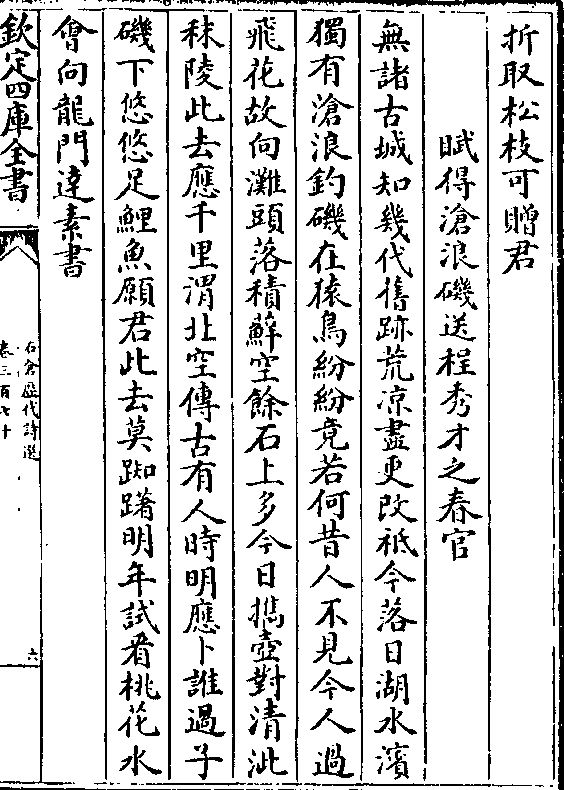 折取松枝可贈君
賦得滄浪磯送程秀才之春官
無諸古城知幾代舊跡荒凉盡更改祇今落日湖水濱
獨有滄浪釣磯在猿鳥紛紛竟若何昔人不見今人過
飛花故向灘頭落積蘚空餘石上多今日携壺對清沘
秣陵此去應千里渭北空傳古有人時明應卜誰過子
磯下悠悠足鯉魚願君此去莫踟躇明年試看桃花水
會向龍門達素書
欽定四庫全書
石倉歴代詩選
卷三百七十
六